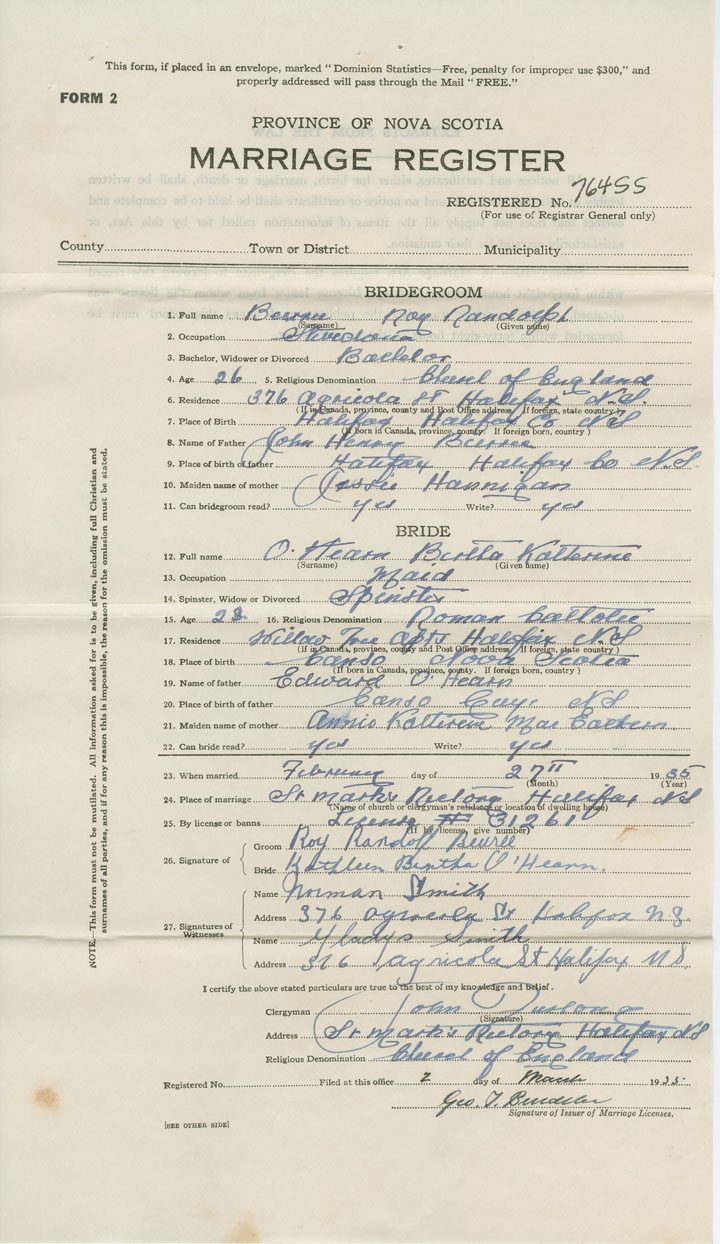 This form, if placed in an envelope, marked "Dominion Statistics—Free, penalty for improper use $300," and
properly addressed will pass through the Mail "FREE."
FORM 2
PROVINCE OF NOVA SCOTIA
MARRIAGE REGISTER
REGISTERED No. 76455
(For use of Registrar General only)
County Town or District Municipality
BRIDEGROOM
1. Full name Roy Randolph
(Surname) (Given name)
2. Occupation
3. Bachelor, Widower or Divorced Bachelor
4. Age 26 5. Religious Denomination Church of England
6. Residence 376 Agricola St Halifax N.S.
(If in Canada, province, county and Post Office address. If foreign, state country)
7. Place of Birth Halifax Halifax Co N S
(If born in Canada, province, county. If foreign born, country)
8. Name of Father John Henry
9. Place of birth of father Halifax Halifax Co N.S
10. Maiden name of mother Jessie Hannigan
11. Can bridegroom read? yes Write? yes
BRIDE
12. Full name O'Hearn Bertha Katherine
(Surname) (Given name)
13. Occupation Maid
14. Spinster, Widow or Divorced Spinster
15. Age 28 16. Religious Denomination Roman Catholic
17. Residence Willow Tree Apts Halifax N S
(If in Canada, province, county and Post Office address. If foreign, state country)
18. Place of birth Canso Nova Scotia
(If born in Canada, province, county. If foreign born, country)
19. Name of father Edward O'Hearn
20. Place of birth of father Canso Guys N S
21. Maiden name of mother Annie Katherine Mac Eachern
22. Can bride read? yes Write? yes
23. When married February day of 27th 1935
(Month) (Year)
24. Place of marriage St Mark's Rectory Halifax N S
(Name of church or clergyman's residence or location of dwelling house)
25. By license or banns License # 31261
(If by license, give number)
26. Signature of Groom Roy Randolf
Bride Kathleen Bertha O'Hearn.
27. Signatures of Witnesses
Name Norman Smith
Address 376 Agricola St Halifax N.S.
Name Gladys Smith
Address 376 Agricola St Halifax N S
I certify the above stated particulars are true to the best of my knowledge and belief.
Clergyman John Furlong
(Signature)
Address St Mark's Rectory Halifax N S
Religious Denomination Church of England
Registered No. Filed at this office 2 day of March 1935
Geo. T.
Signature of Issuer of Marriage Licenses.
[SEE OTHER SIDE]
NOTE.—This form must not be mutilated. All information asked for is to be given, including full Christian and
surnames of all parties, and if for any reason this is impossible, the reason for the omission must be stated.